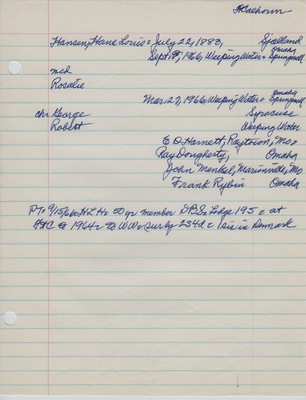 Ft Calhoun
Hansen, Hans Louis: July 22, 1883, Sjælland
Omaha
Sept 19, 1966, Weeping Water: Springwell
md
Rosalie
Omaha
Mar 27, 1966, Weeping Water: Springwell
ch: George Syracuse
Robert Weeping Water
E O Harnett, Raytown, Mo:
Ray Dougherty, Omaha
John Menkel, Marionville, Mo
Frank Rybin Omaha
50 yr member D.B.S. Lodge 195 c at
1964 c 2 sis in Denmark